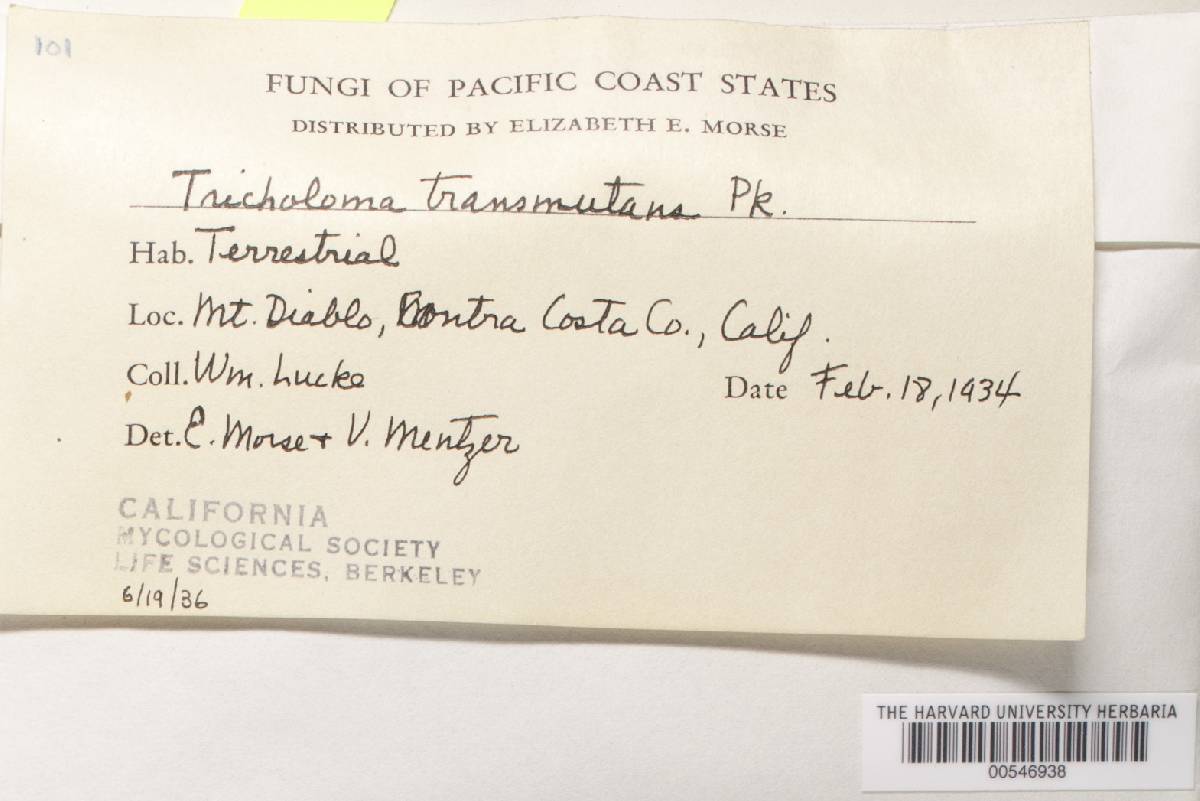 101
FUNGI OF PACIFIC COAST STATES
DISTRIBUTED BY ELIZABETH E. MORSE
Tricholoma transmutans Pk.
Hab. Terrestrial
Loc. Mt. Diablo, Contra Costa Co., Calif.
Coll. Wm. Lucke
Date Feb. 18, 1934
Det. E. Morse + V. Mentzer
CALIFORNIA
MYCOLOGICAL SOCIETY
LIFE SCIENCES, BERKELEY
6/19/36
THE HARVARD UNIVERSITY HERBARIA
00546938